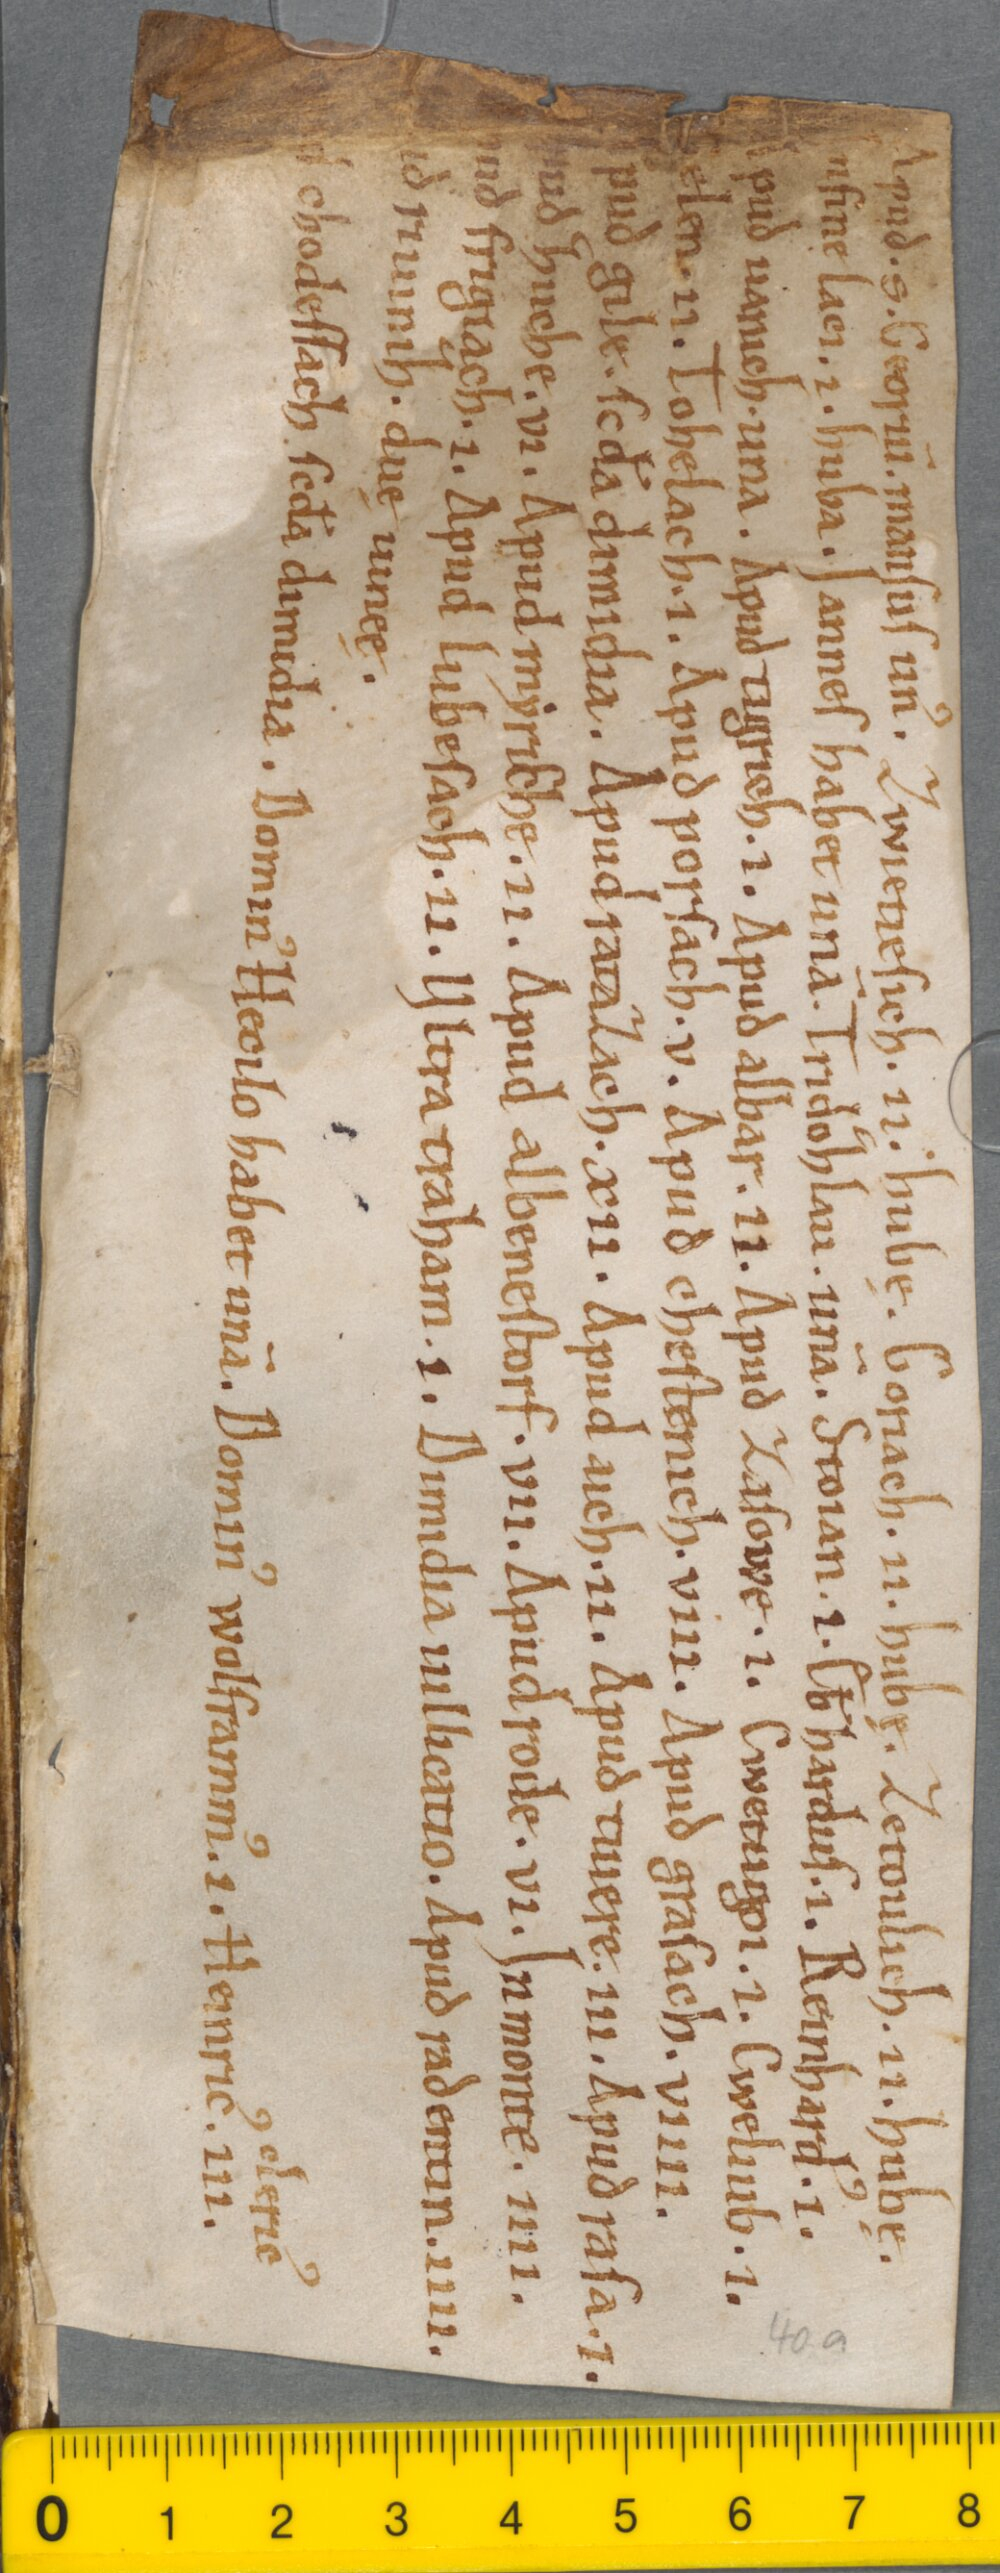 Apud. S. Georiū. mansus un᷒. Zwetesich. ii. hubę. Goriach. ii. hubę. Zetoulich. ii. hubę.
nfine laci. i. huba. Iannes habet unā. Tridohlau. unā. Stoian. i. Ebhardus. i. Reinhard᷒. i.
pud uanich. una. Apud tigrich. i. Apud albar. ii. Apud Zasowe. i. Cwetigoi. i. Cwelnub. i.
elen. ii. Tohelach. i. Apud porsach. v. Apud chestenich. viii. Apud grasach. viiii.
pud gile. scd̄a dimidia. Apud ratalach. xii. Apud aich. ii. Apud tiuere. iii. Apud rasa. i.
ud huche. vi. Apud myrische. ii. Apud albenestorf. vii. Apud rode. vi. In monte. iiii.
ud friglach. i. Apud liubesach. ii. Vltra traham. i. Dimidia uillicatio. Apud radentin. iiii.
ud runih. duę uineę.
chodessach. scd̄a dimidia. Domin᷒ Hecilo habet unā. Domin᷒ wolframm᷒. i. Henric᷒. iii.
cleric᷒
40a
0 1 2 3 4 5 6 7 8